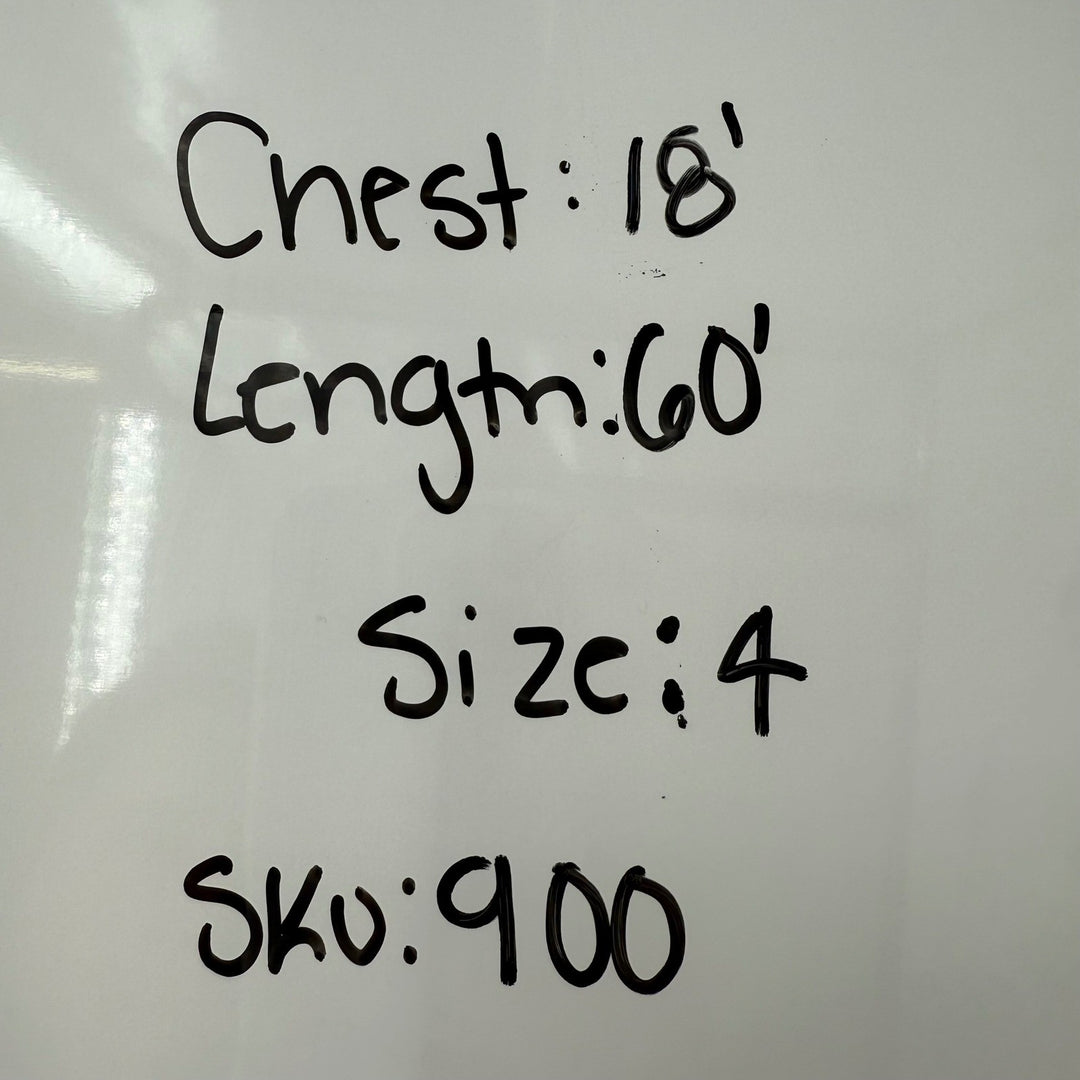 Chest: 18'
Length: 60'
Size: 4
SKU: 900